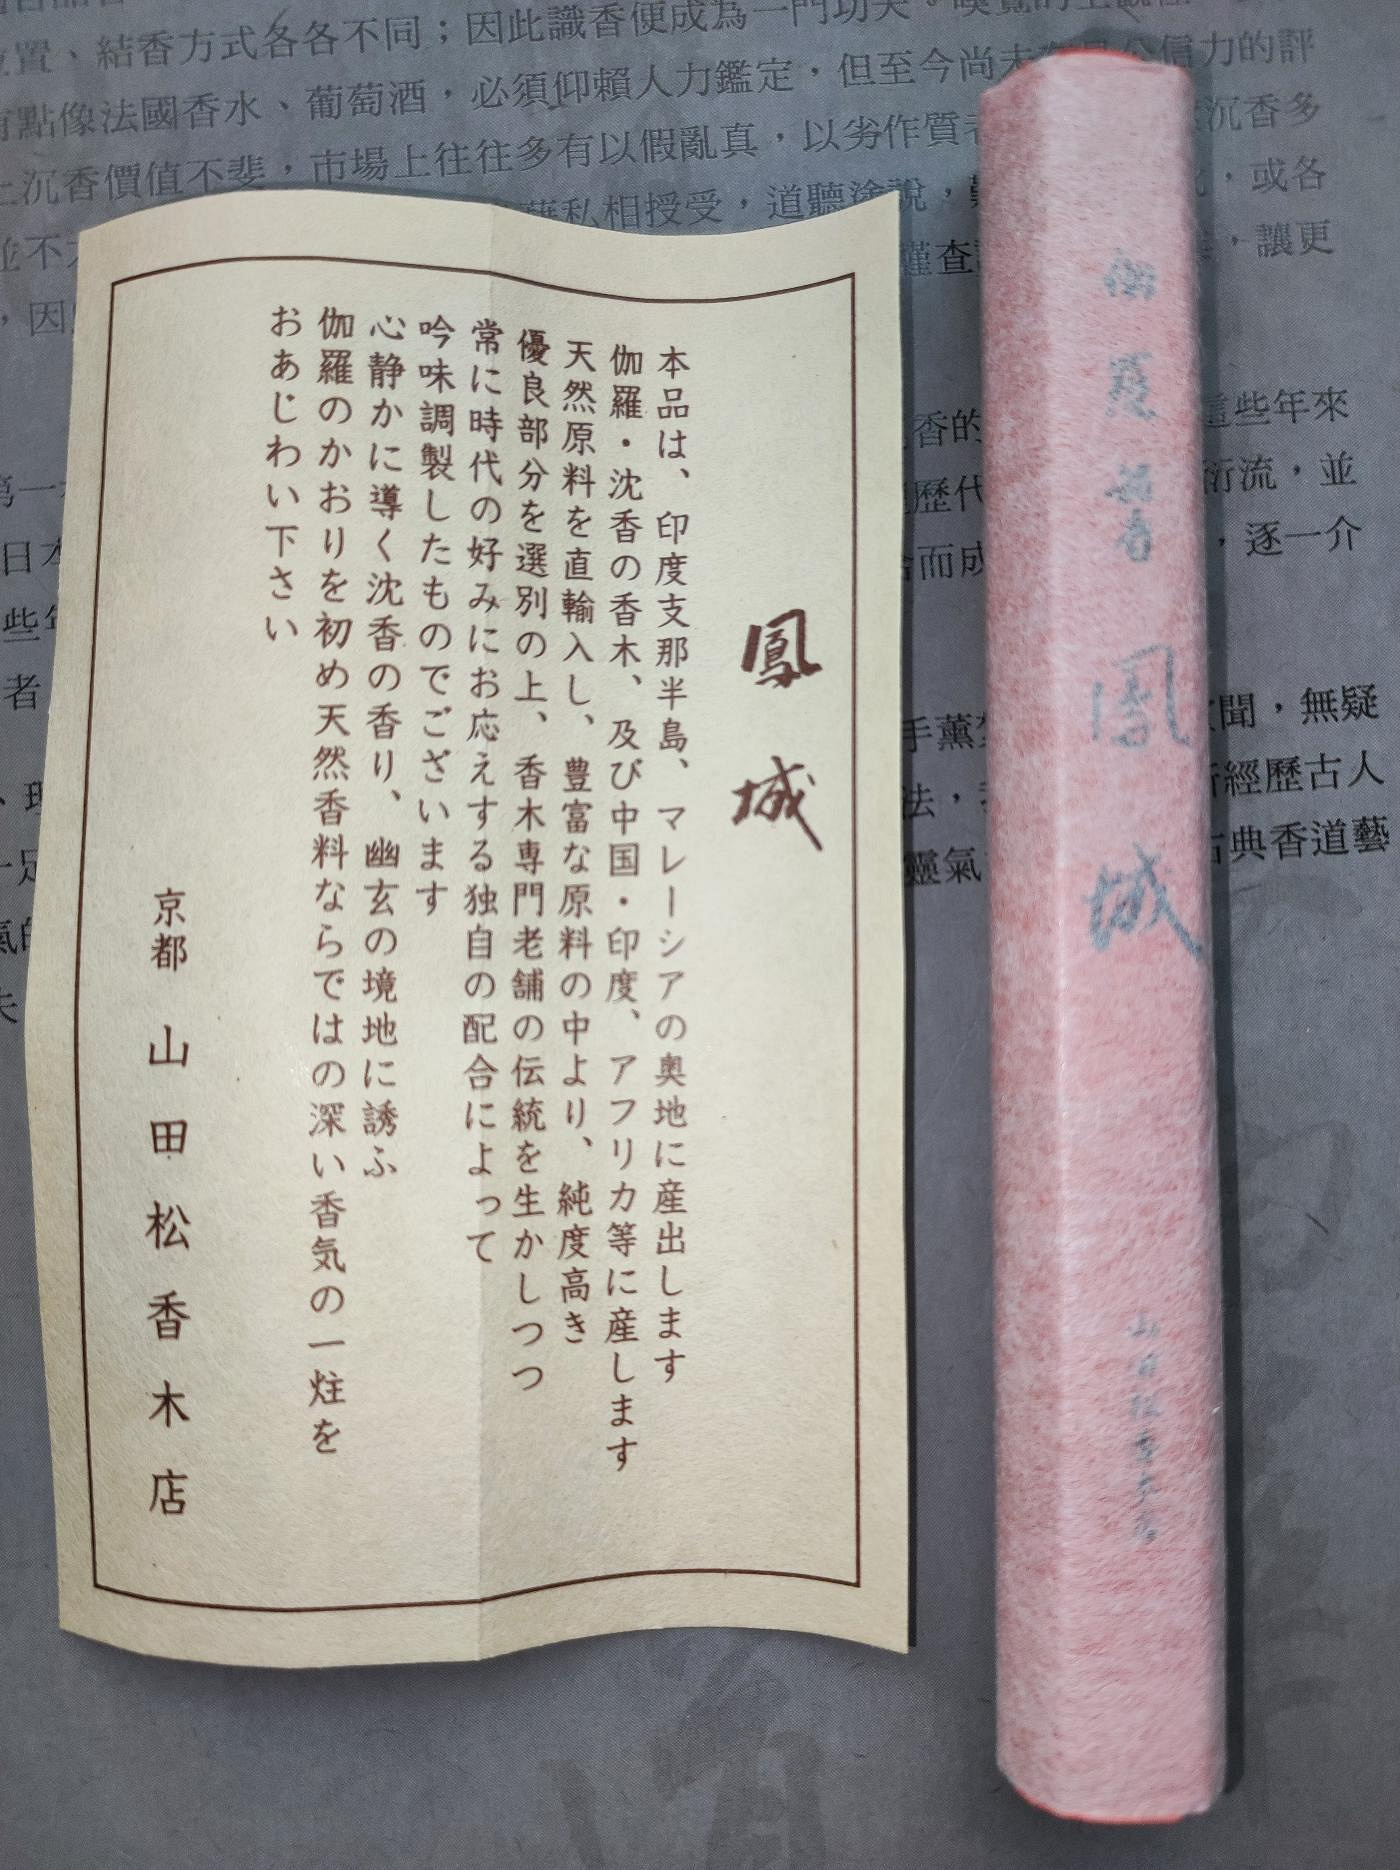 鳳城
本品は、印度支那半島、マレーシアの奥地に産出します
伽羅・沈香の香木、及び中国・印度、アフリカ等に産します
天然原料を直輸入し、豊富な原料の中より、純度高き
優良部分を選別の上、香木専門老舗の伝統を生かしつつ
常に時代の好みにお応えする独自の配合によって
吟味調製したものでございます
心静かに導く沈香の香り、幽玄の境地に誘ふ
伽羅のかおりを初め天然香料ならではの深い香気の一炷を
おあじわい下さい
京都 山田松香木店
伽羅
鳳城
山田松香木店
置、結香方式各各不同；因此識香便成為一門功夫。嗅覺的
點像法國香水、葡萄酒，必須仰賴人力鑑定，但至今尚未
信力的評
沉香價值不斐，市場上往往多有以假亂真，以劣作質
沉香多
並不
私相授受，道聽塗說，
，或各
，因
謹查
，讓更
第一
香的
這些年來
歷代
術流，並
日本
而成
，逐一介
些
者
手薰
聞，無疑
、
法，
經歷古人
靈氣
古典香道藝